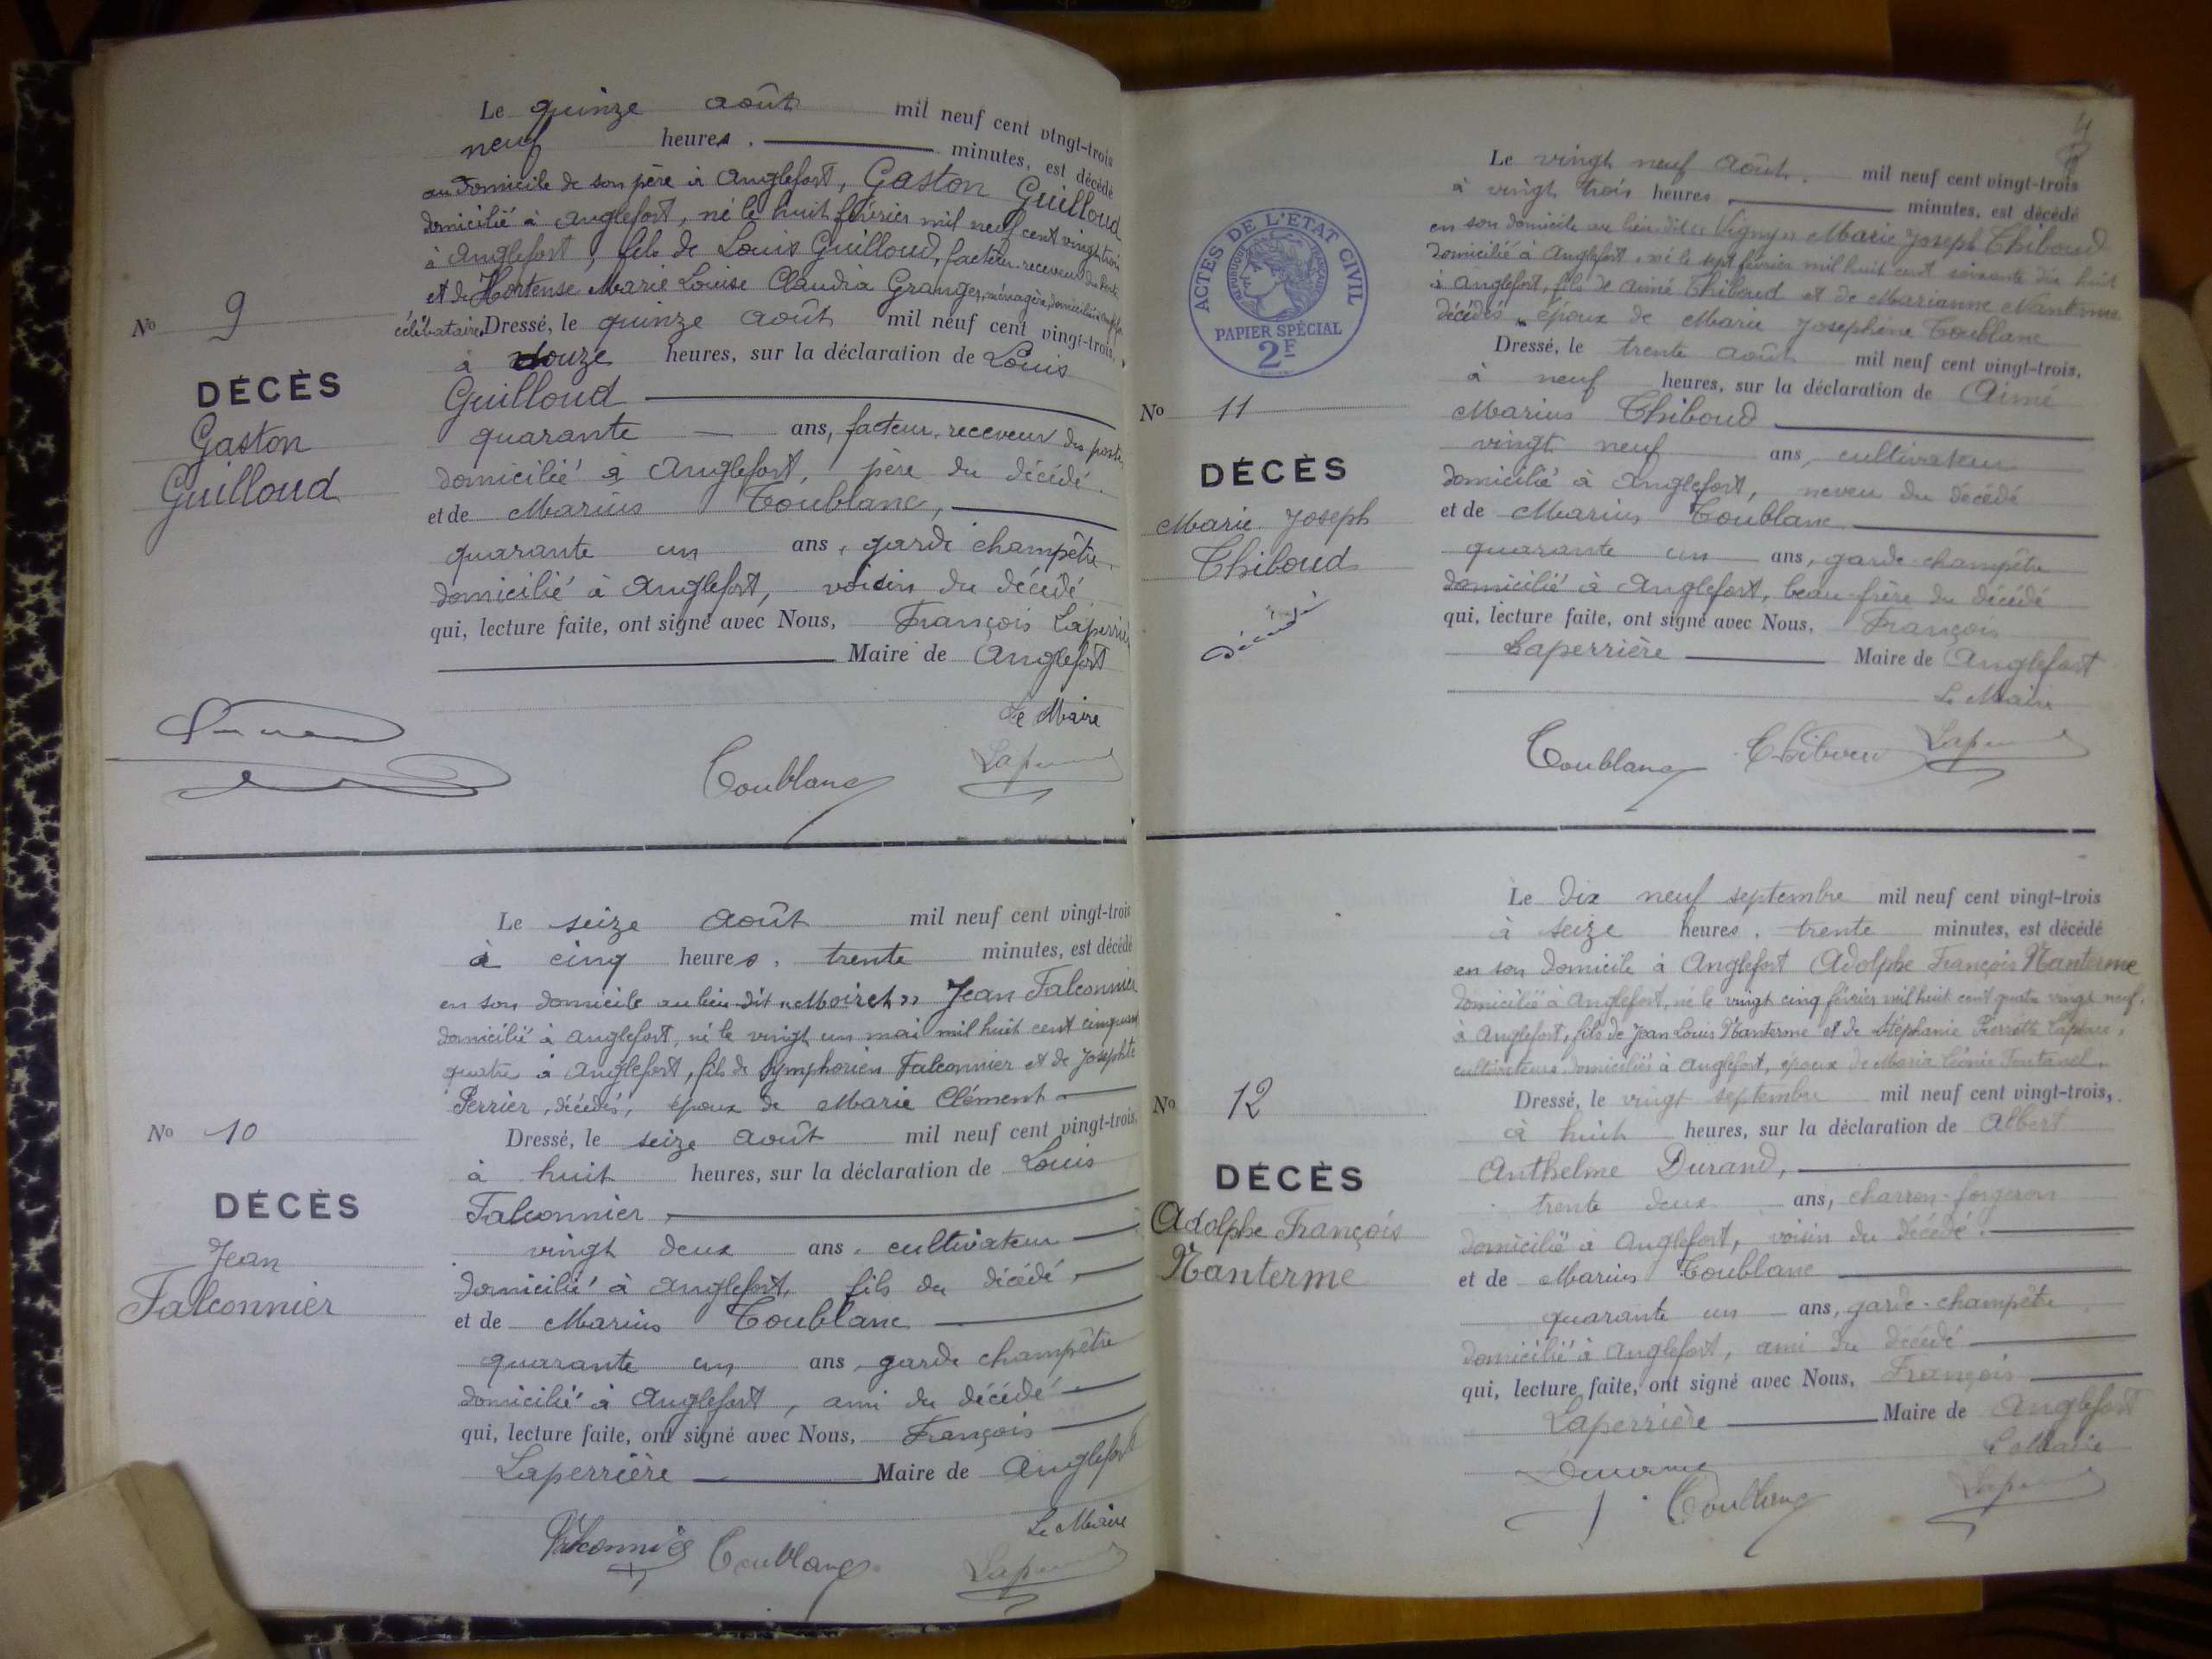 Le quinze août mil neuf cent vingt-trois
neuf heures. minutes, est décédé
au domicile de son père à Anglefort, Gaston Guilloud
domicilié à Anglefort, né le huit février mil neuf cent vingt trois
à Anglefort, fils de Louis Guilloud, facteur-receveur des Postes
et de Hortense Marie Louise Claudia Granger, ménagère, domiciliés à Anglefort
célibataire Dressé, le quinze août mil neuf cent vingt-trois,
à douze heures, sur la déclaration de Louis
Guilloud
quarante ans, facteur-receveur des postes
domicilié à Anglefort, père du décédé.
et de Marius Toublanc,
quarante un ans, garde champêtre
domicilié à Anglefort, voisin du décédé
qui, lecture faite, ont signé avec Nous, François Laperrière
Maire de Anglefort
Le Maire
Toublanc
No 9
DÉCÈS
Gaston
Guilloud
Le seize août mil neuf cent vingt-trois
à cinq heures, trente minutes, est décédé
en son domicile au lieu dit "Moiret" Jean Falconnier
domicilié à Anglefort, né le vingt un mai mil huit cent cinquante
quatre à Anglefort, fils de Symphorien Falconnier et de Josephte
Perrier, décédés, époux de Marie Clément
Dressé, le seize août mil neuf cent vingt-trois,
à huit heures, sur la déclaration de Louis
Falconnier,
vingt deux ans, cultivateur
domicilié à Anglefort, fils du décédé,
et de Marius Toublanc
quarante un ans, garde champêtre
domicilié à Anglefort, ami du décédé
qui, lecture faite, ont signé avec Nous, François
Laperrière Maire de Anglefort
Le Maire
Falconnier Toublanc
No 10
DÉCÈS
Jean
Falconnier
Le vingt neuf août. mil neuf cent vingt-trois
à vingt trois heures minutes, est décédé
en son domicile au lieu dit "Vigny" Marie Joseph Thiboud
domicilié à Anglefort, né le sept février mil huit cent soixante dix huit
à Anglefort, fils de Aimé Thiboud et de Marianne Nanterme
décédés, époux de Marie Josephine Toublanc
Dressé, le trente août mil neuf cent vingt-trois,
à neuf heures, sur la déclaration de Aimé
Marius Thiboud
vingt neuf ans, cultivateur
domicilié à Anglefort, neveu du décédé
et de Marius Toublanc
quarante un ans, garde-champêtre
domicilié à Anglefort, beau-frère du décédé
qui, lecture faite, ont signé avec Nous, François
Laperrière Maire de Anglefort
Le Maire
Toublanc Thiboud
ACTES DE L'ETAT CIVIL
REPUBLIQUE FRANÇAISE
PAPIER SPÉCIAL
2F
No 11
DÉCÈS
Marie Joseph
Thiboud
Le dix neuf septembre mil neuf cent vingt-trois
à seize heures, trente minutes, est décédé
en son domicile à Anglefort Adolphe François Nanterme
domicilié à Anglefort, né le vingt cinq février mil huit cent quatre vingt neuf
à Anglefort, fils de Jean Louis Nanterme et de Stéphanie Pierrette
cultivateurs domiciliés à Anglefort, époux de Marie Léonie Fontanel.
Dressé, le vingt septembre mil neuf cent vingt-trois,
à huit heures, sur la déclaration de Albert
Anthelme Durand,
trente deux ans, charron-forgeron
domicilié à Anglefort, voisin du décédé.
et de Marius Toublanc
quarante un ans, garde-champêtre
domicilié à Anglefort, ami du décédé
qui, lecture faite, ont signé avec Nous, François
Laperrière Maire de Anglefort
Le Maire
Toublanc
No 12
DÉCÈS
Adolphe François
Nanterme